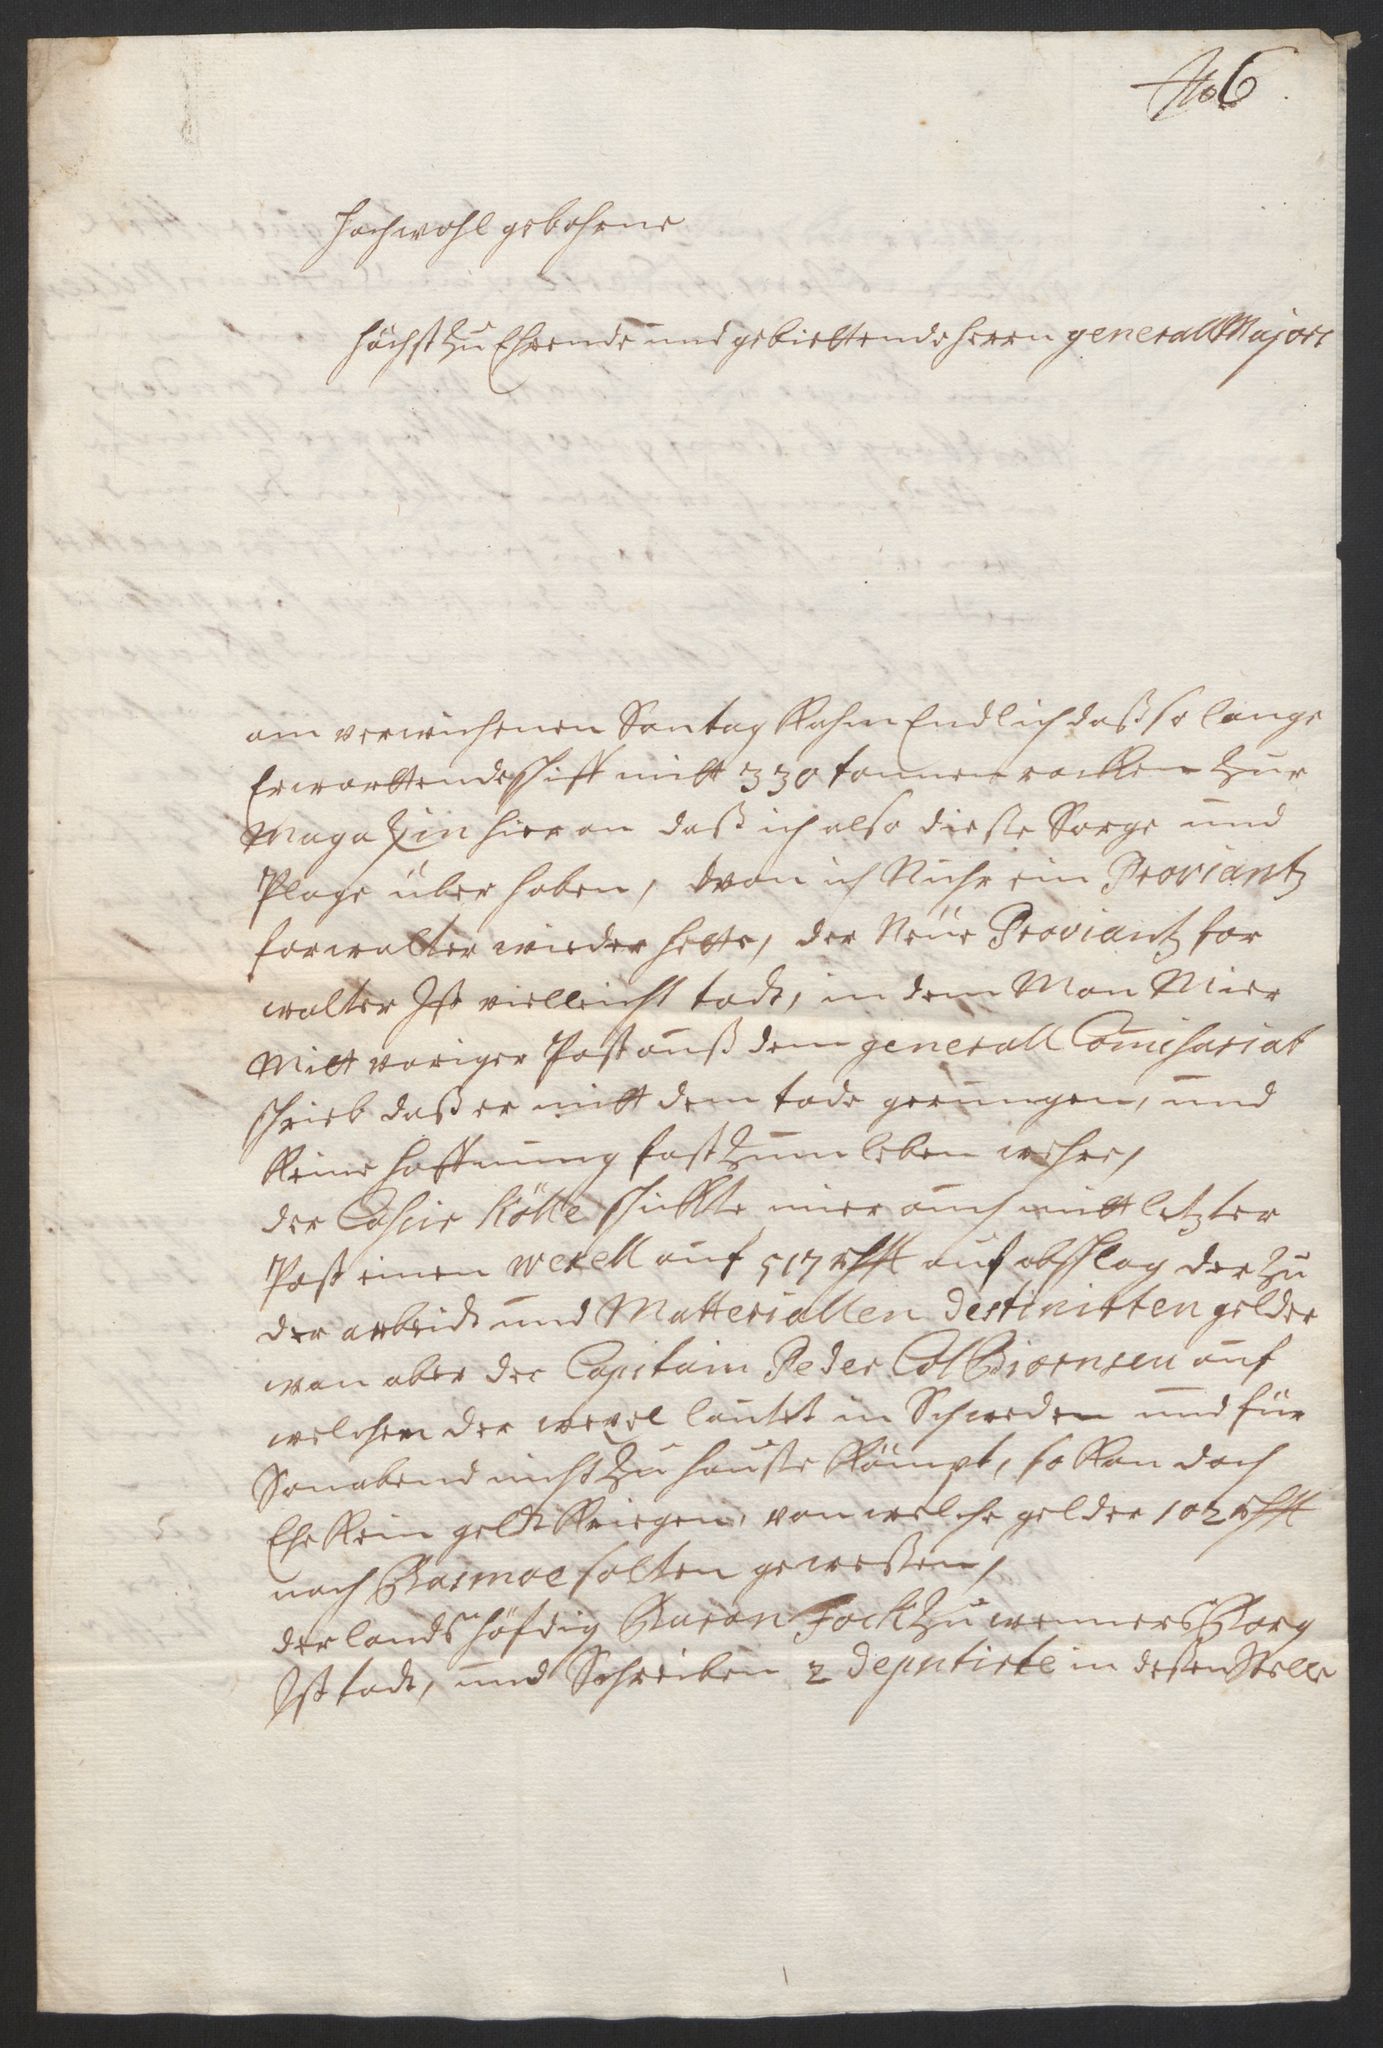 No 6
Hochwohl gebohrne
höchst zu Ehrende und gebiettende Herrn generall Majors
am verwichenen Sontag Kahm Endlich daß so lange
Erwarttende schiff mitt 330 tonnen rocken zur
Magazin hier an daß ich also diesse Sorge und
Plage über haben, wan ich Nuhr ein Proviantz
forwalter wieder hette, der Neüe Proviantz for
walter Ist vielleicht todt, in dem Man Mier
Mitt voriger Post auß dem generall Comisariat
schrieb daß er mitt dem tode gerungen, und
Keine hoffnung fast zum leben wehre,
der Casir Kölle schickte mier auch mitt letzter
Post einen wexell auf 517 rthlr auf abschlag der zu
der arbeidt und Matteriallen destinirten gelder
wan aber der Capitain Peder Colbiörnsen auf
welchem der wexel lautet in Schweden und für
Sonabend nicht zu hausse Kömpt, so Kan doch
Ehe Kein geldt Kriegen, von welche gelder 102 rthlr
nach Basmoe solten gewessen,
der lands höfdig Baron Fock zu wennersBorg
Ist todt, und Schreiben 2 deputirte in dessen Stelle